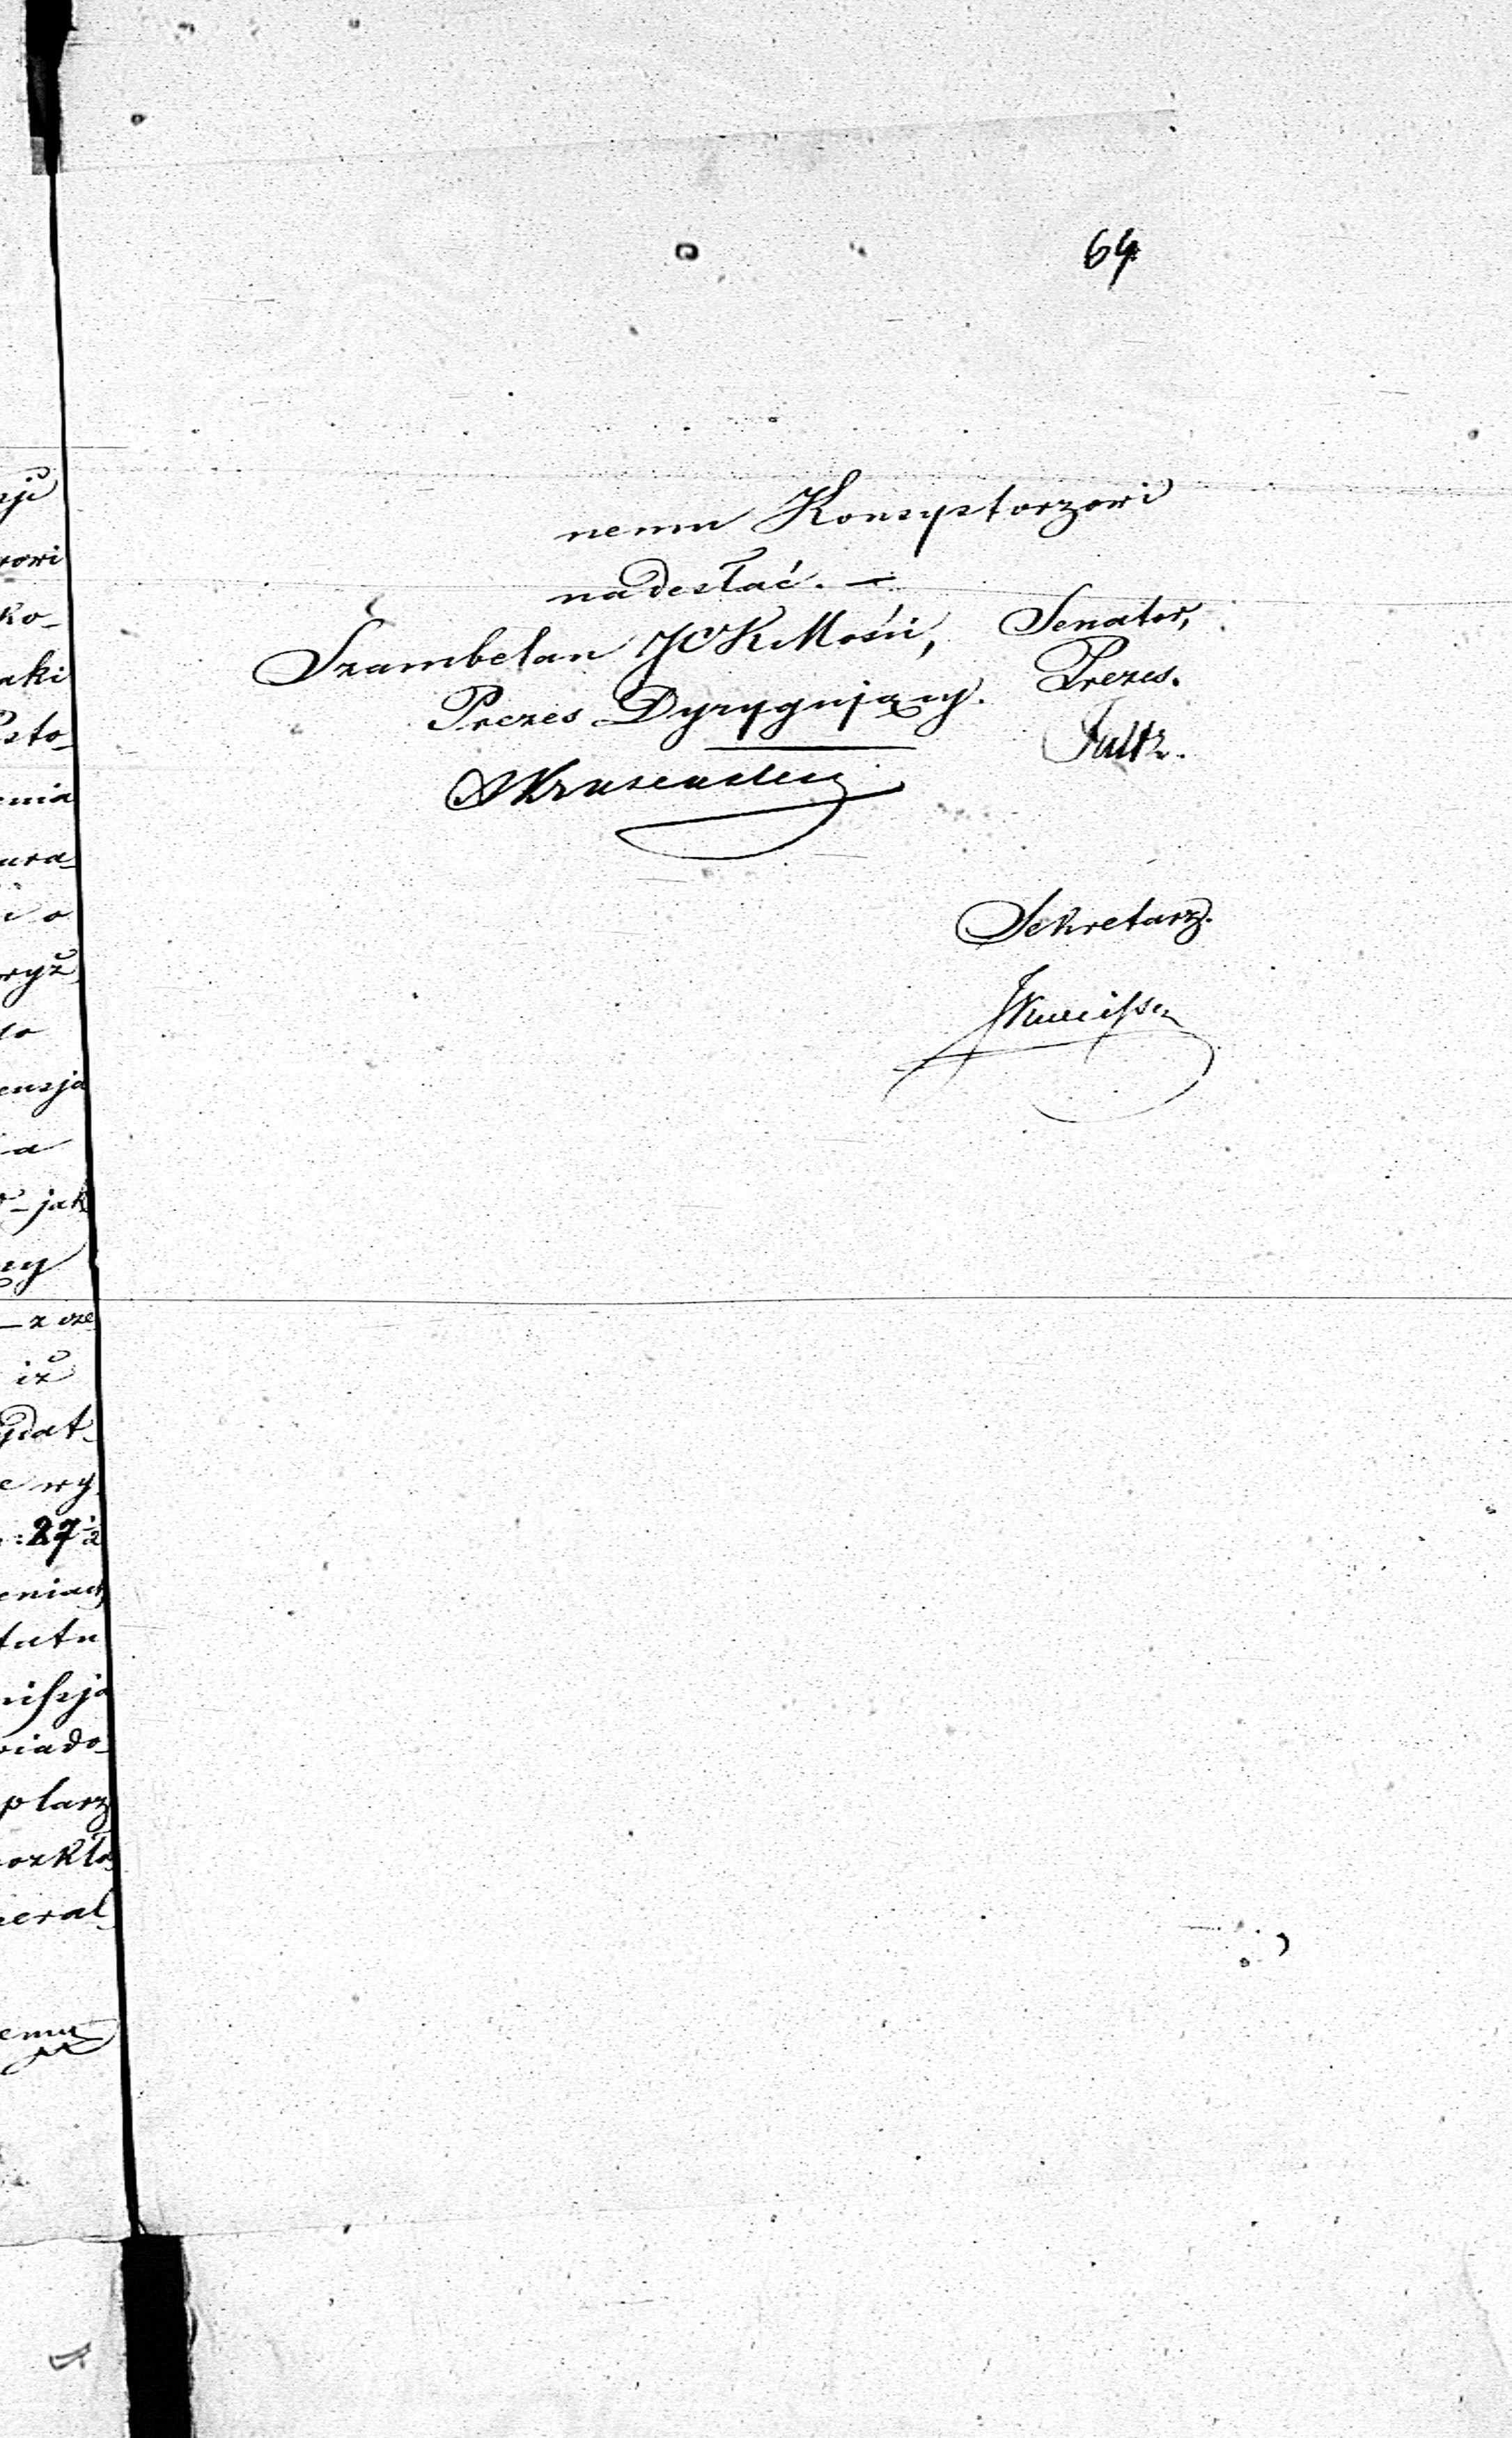 64
nemu Konsystorzowi
nadesłać. —
Szambelan JCKMości,
Prezes Dyrygujący.
Senator,
Prezes.
Sekretarz.
rowi
ko-
aki
sto-
enia
ura-
i o
ryż
ensja
ia
- jak
iż
ydat-
e wy
27
eniach
tutu
wiado-
plarz
rozkła
neral
emu